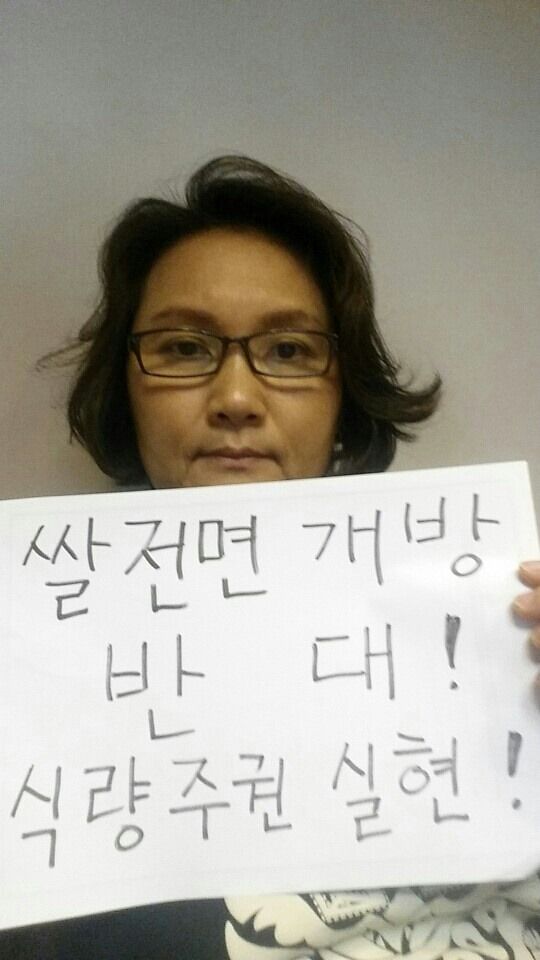 쌀전면 개방
반 대!
식량주권 실현!